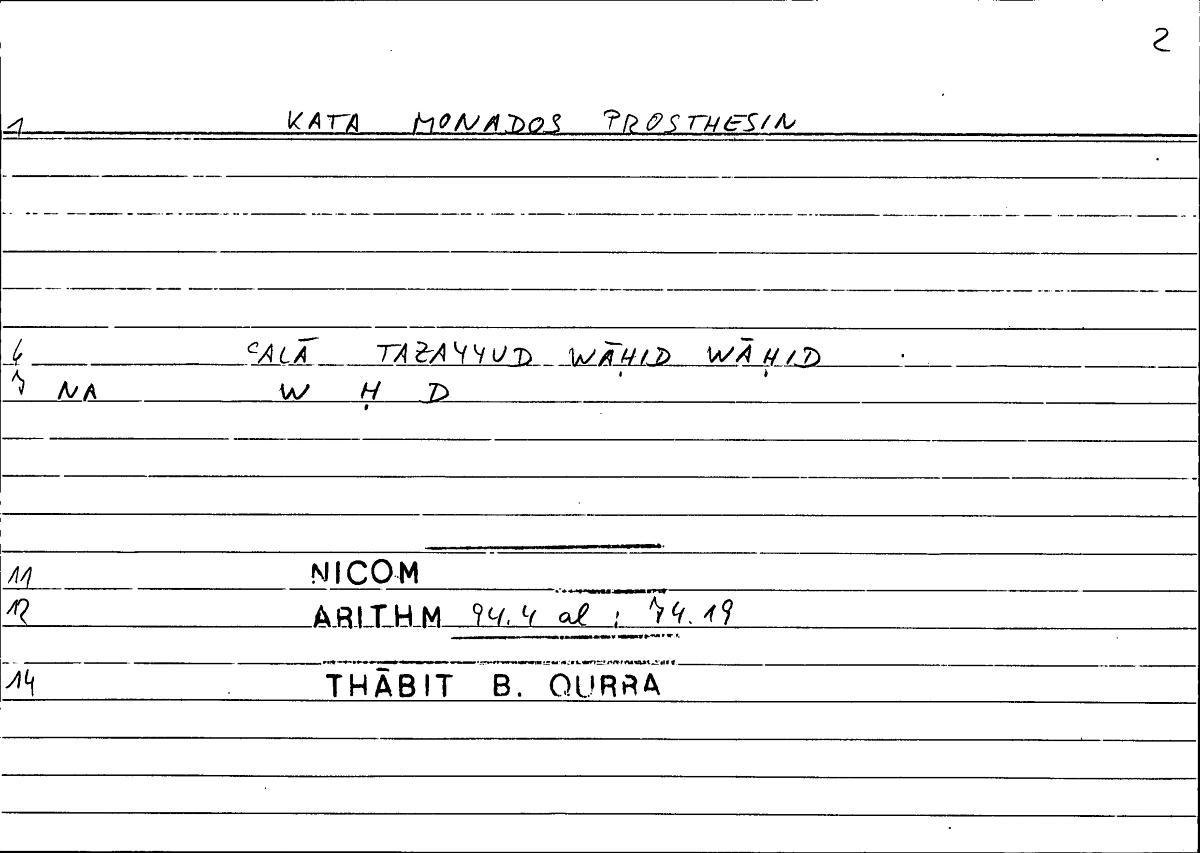 2
1 KATA MONADOS PROSTHESIN
6 ʿALĀ TAZAYYUD WĀḤID WĀḤID .
7 NA W Ḥ D
11 NICOM
12 ARITHM 94.4 al ; 74.19
14 THĀBIT B. QURRA